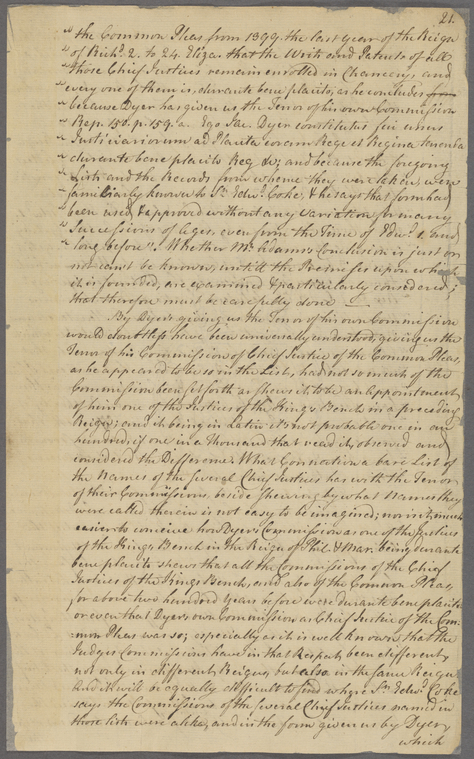 21.
" the Common Pleas from 1399. the last year of the Reign
" of Richd. 2. to 24. Eliza. that the Writs and Patents of all
" those Chief Justices remain enrolled in Chancery, and
" every one of them is, durante bene placito, as he concludes
" because Dyer has given us the Tenor of his own Commission
" Rep. 150. p. 159. a. Ego Jac. Dyer constitutus fui unus
" Justiciariorum ad Placita coram Rege et Regina tenenda
" durante bene placito Reg. &c; and because the foregoing
" Lists and the Records from whence they were taken, were
" familiarly known to Sr. Edwd. Coke, & he says that form had
" been used & approved without any Variation for many
" Successions of Ages, even from the Time of Edwd. 1. and
" long before". Whether Mr. Adams's Conclusion is just or
not can't be known, untill the Premisses upon which
it is founded, are examined & particularly considered;
that therefore must be carefully done
By Dyers giving us the Tenor of his own Commission
would doubtless have been universally understood, giving us the
Tenor of his Commission of Chief Justice of the Common Pleas,
as he appeared to be so in the List, had not so much of the
Commission been set forth as shews it to be an Appointment
of him one of the Justices of the Kings Bench in a preceding
Reign; and it being in Latin it's not probable one in an
hundred, if one in a Thousand that read it, observed and
considered the Difference. What Connection a bare List of
the Names of the several Chief Justices has with the Tenor
of their Commissions, beside shewing by what Names they
were called therein is not easy to be imagined; nor is it much
easier to conceive how Dyers Commission as one of the Justices
of the Kings Bench in the Reign of Phil. & Mar. being durante
bene placito shews that all the Commissions of the Chief
Justices of the Kings Bench, and also of the Common Pleas,
for above two hundred Years before were durante bene placito
or even that Dyers own Commission as Chief Justice of the Com-
mon Pleas was so; especially as it is well known that the
Judges Commissions have in that Respect, been different,
not only in different Reigns, but also in the same Reign.
And it will be equally difficult to find where Sr. Edwd. Coke
says the Commissions of the several Chief Justices named in
those lists were alike, and in the form given us by Dyer,
which